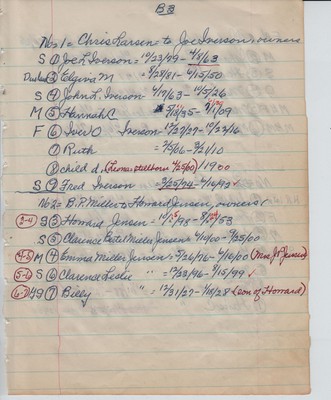 B 3
No 1 = Chris Larsen = to Joe Iverson, owners
S ① Joe L. Iverson = 10/23/99 - 4/8/63
③ Elgena M = 9/28/81 - 4/15/50
S ④ John L. Iverson - 4/17/63 - 10/5/26
M ⑤ Hannah C
F ⑥ Iver O Iverson = 10/27/27 - 10/22/16
⑦ Ruth = 7/5/06 - 9/21/10
⑧ child d. (Leona stillborn 4/25/00) / 1900
S ⑨ Fred Iverson = 9/25/74 - 4/16/93 ✓
No 2 = B.P. Miller to Howard Jensen, owners
3-4 S ③ Howard Jensen = /98 - /53
S ⑤ Clarence Miller Jensen = 4/10/00 - 9/25/00
4-5 M ④ Emma Miller Jensen = 9/26/76 - 4/16/00 (Mrs. Jensen)
5-6 S ⑥ Clarence Leslie " = 10/23/96 - 4/15/99 ✓
6-7 ⑦ Billy " = 12/31/27 - 4/18/28 (son of Howard)